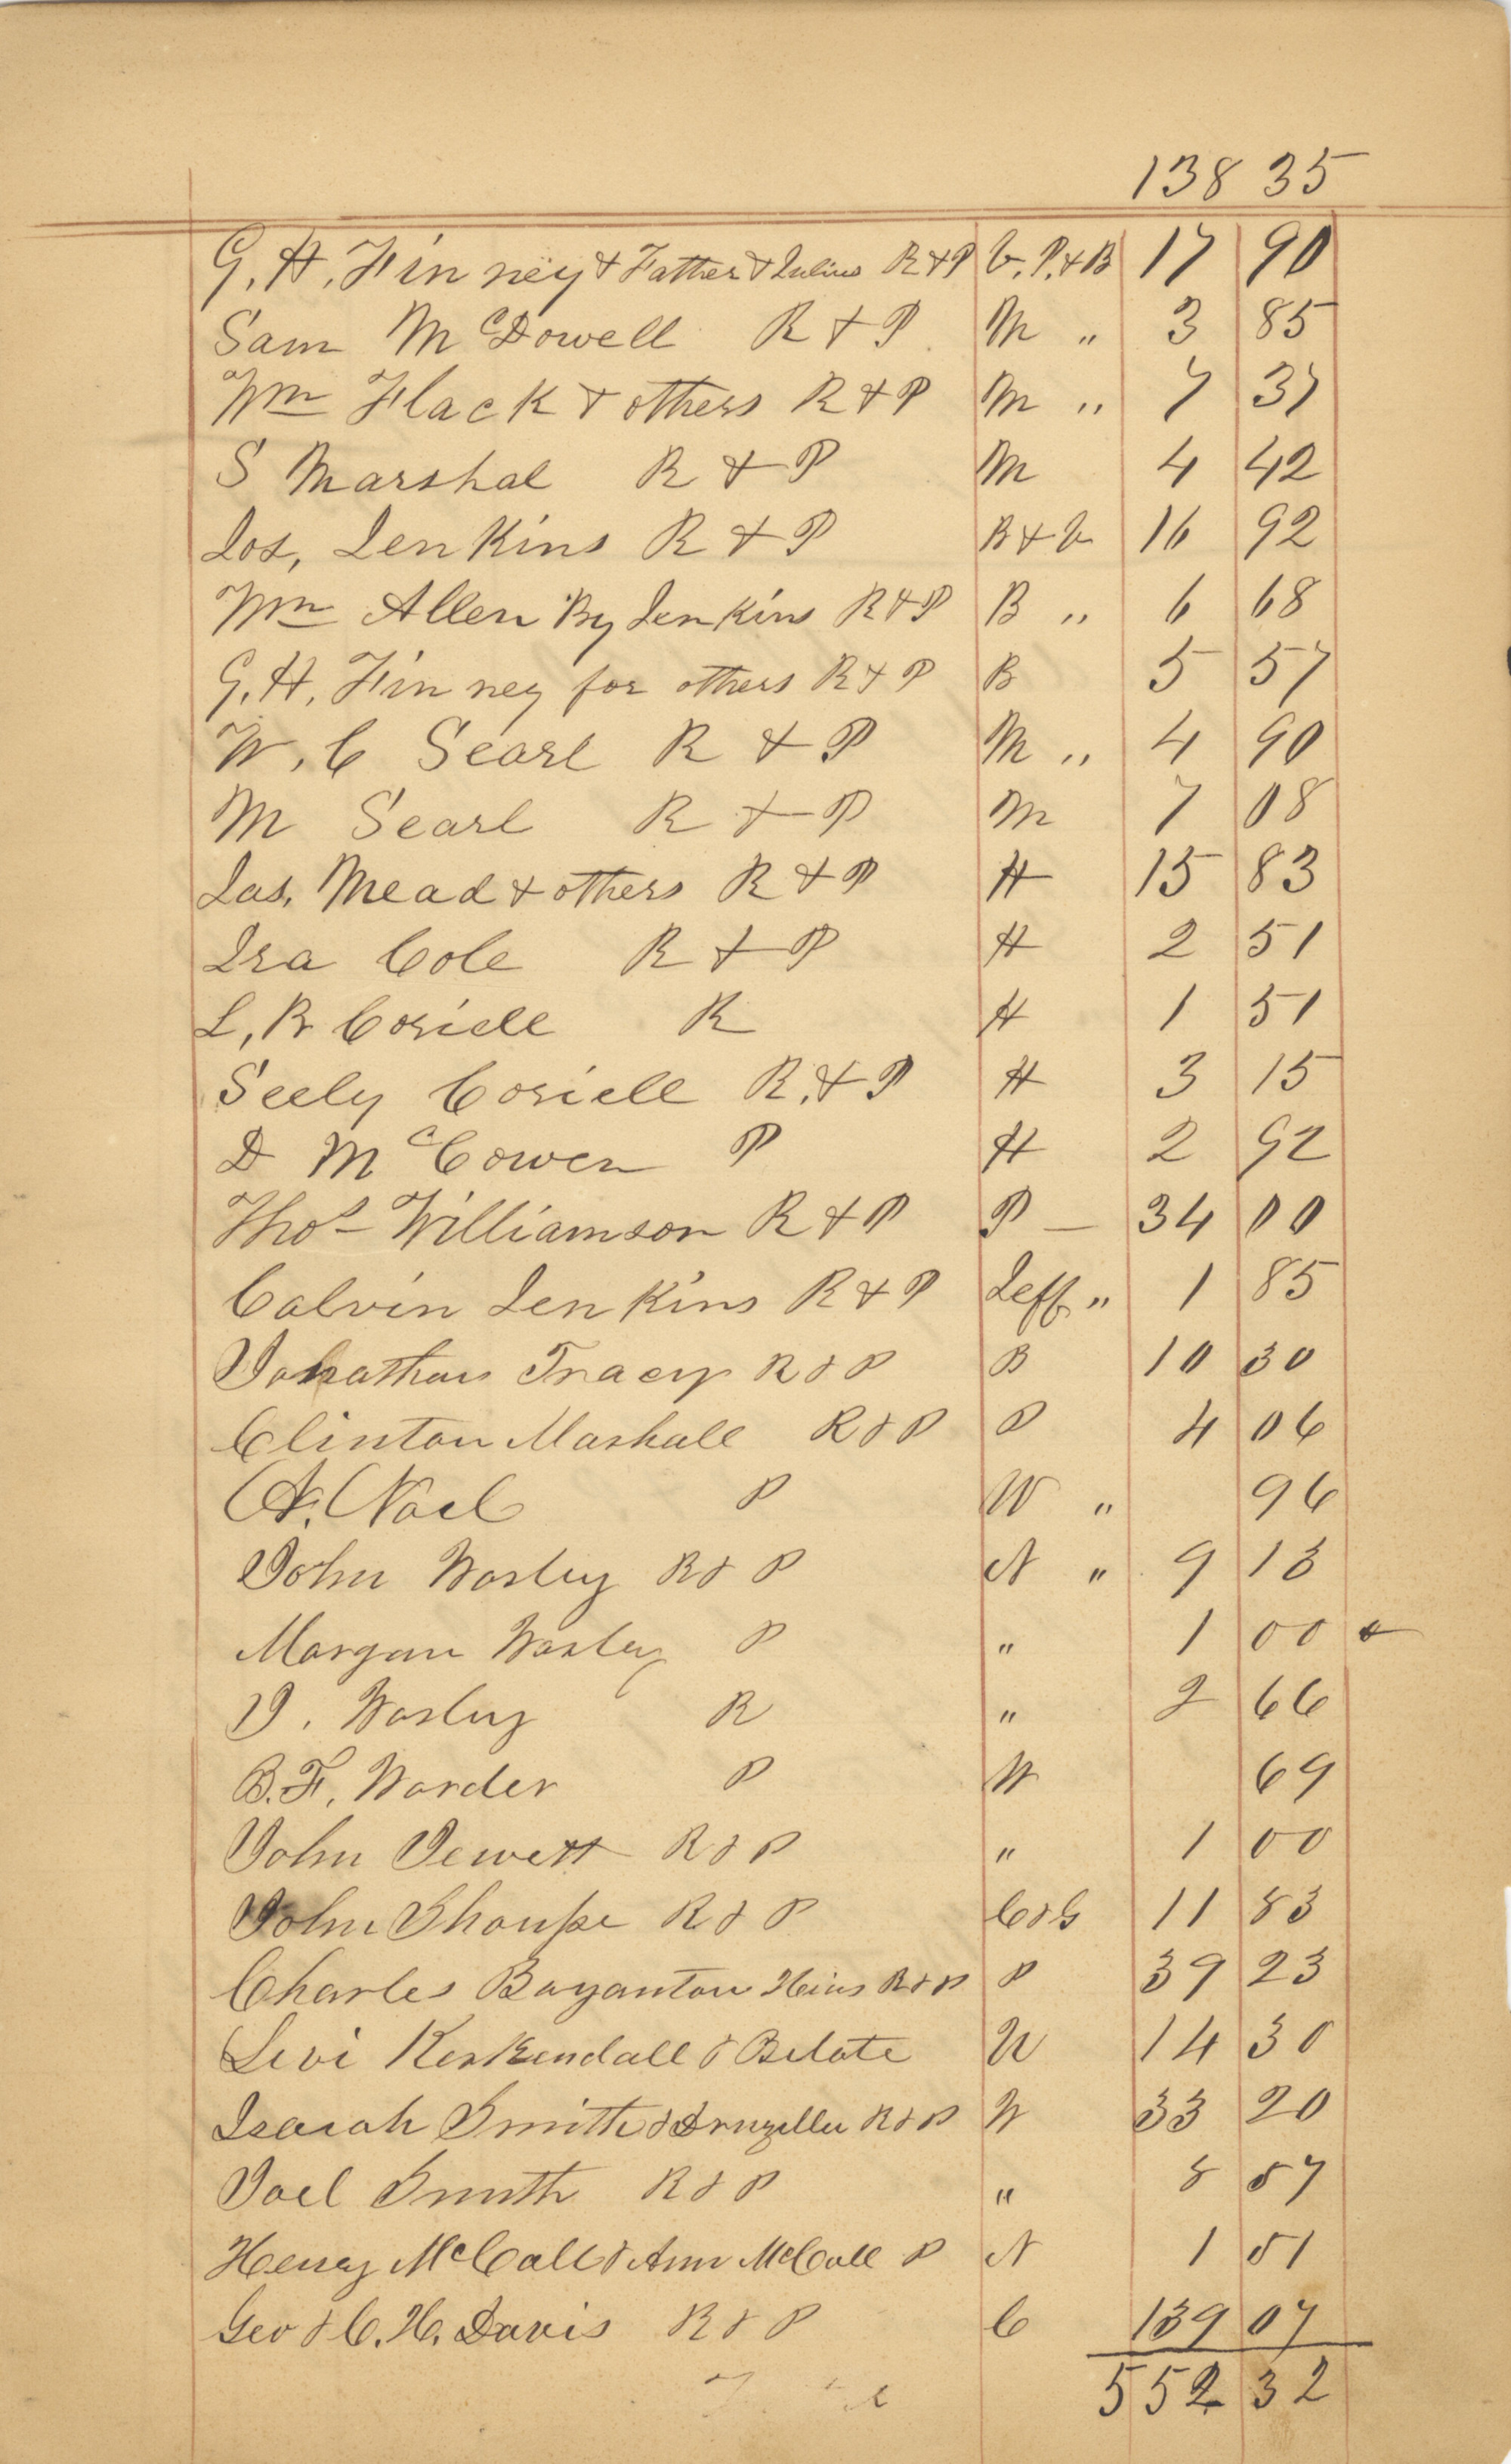 138 35
G. H. Finney & Father & Julius R & P V. P. & B 17 90
Sam McDowell R & P M " 3 85
Wm Flack & others R & P M " 7 37
S Marshal R & P M 4 42
Jos, Jenkins R & P B & V 16 92
Wm Allen By Jenkins R & P B " 6 68
G. H. Finney for others R & P B 5 57
W. C Searl R & P M " 4 90
M Searl R & P M 7 08
Jas. Mead & others R & P H 15 83
Ira Cole R & P H 2 51
L, B Coriell R H 1 51
Seely Coriell R. & P H 3 15
D McCowen P H 2 92
Thos Williamson R & P P — 34 00
Calvin Jenkins R & P Jeff " 1 85
Jonathan Tracy R & P B 10 30
Clinton Marhall R & P P 4 06
A. Noel P W " 96
John Worley R & P N " 9 13
Morgan Worley P " 1 00
J. Worley R " 2 66
B. F. Worder P W 69
John Jewett R & P " 1 00
John Shoupe R & P C & G 11 83
Charles Boyanton Heirs R & P P 39 23
Levi Kerkendall & Belote W 14 30
Isaiah Smith & Druzilla R & P W 33 20
Joel Smith R & P " 8 57
Henry McCall & Ann McCall P N 1 51
Geo & C. H. Davis R & P C 139 07
552 32